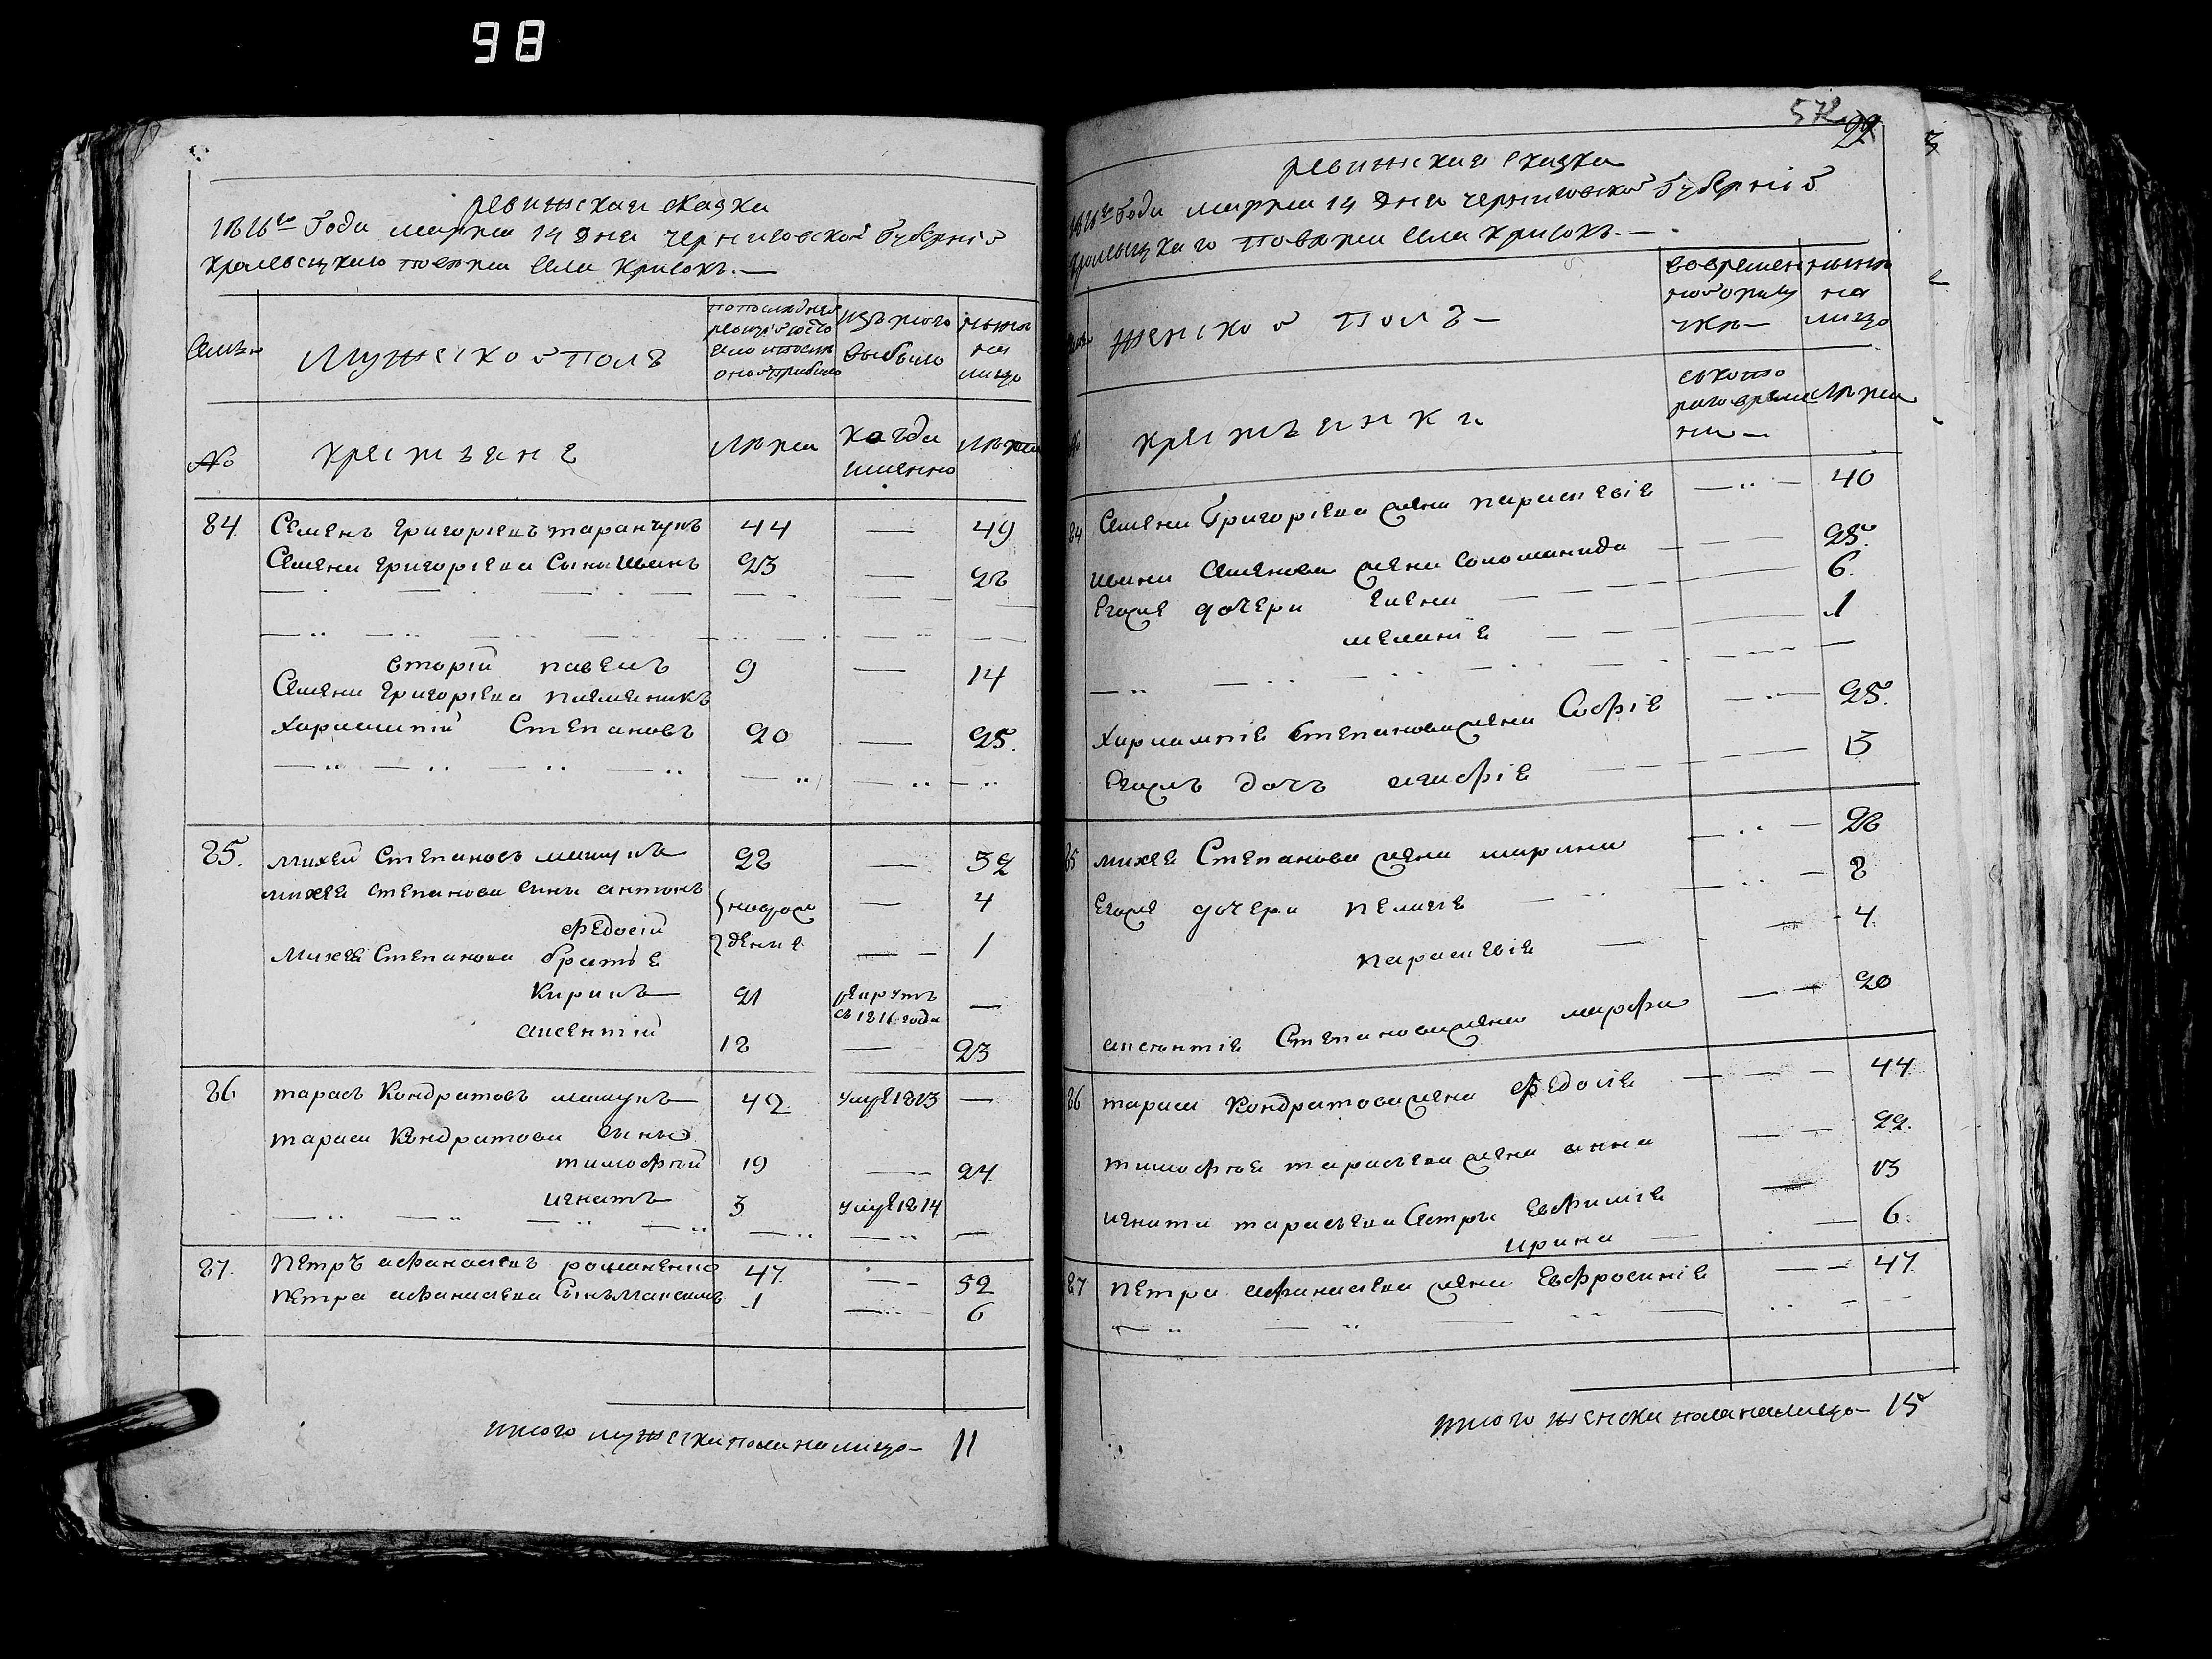 98
Ревижская сказка
1816го года марта 14 дня черниговской губернiй
кролевецкаго поветта села Крисокъ.—
Семьи
Мужеской полъ
По последней ревизiй состояло и после оной прибыло
Изъ того выбыло
Ныне на лицо
№
крестьяне
Лѣта
когда именно
Лѣта
84. Семенъ григорiевъ таранчукъ 44 — 49
Семена григорiева сынъ Иванъ 23 — 28
вторiй павелъ 9 — 14
Семена григорiева племеникъ
Харлампiй Степановъ 20 — 25.
85. михей Степановъ мишукъ 28 — 52
михея степанова сынъ антонъ новорож — 4
федосiй денiе — 1
михея Степанова братья
Кирикъ 21 рекрутъ съ 1816 года —
авсентiй 18 — 23
86 тарасъ Кондратовъ мишукъ 42 умре 1813 —
тараса Кондратова сины
тимофѣй 19 — 24
игнатъ 3 умре 1814
87. Петръ афанасiевъ романенко 47 — 52
Петра афанасiева сынъ максимъ 1 — 6
итого мужеска пола на лицо— 11
572
99
3
Ревижская сказка
1816го года марта 14 дня черниговской губернiй
кролевецкаго поветта села Крисокъ.—
женской полъ—
Во временной отлучке—
Ныне на лицо
№
крестьянки
съ которого времени—
Лѣта
84 Семена григорiева жена параскевiя — 40
ивана Семенова жена соломанида — 25.
Егоже дочери елена — 6.
меланiя — 1
Харлампiя Степанова жена Софiя — 25.
Егожъ дочъ агафiя — 13
85 михея Степанова жена марина — 28
Егоже дочери пелагея — 8
параскевiя — 4
авсентiя Степанова жена марфа — 20
86 тараса Кондратова жена федосiя — 44
тимофѣя тарасьева жена анна — 22.
игната тарасьева сестры Евфимiя — 13
ирина — 6.
87 петра афанасiева жена Евфросинiя — 47
итого женска пола на лицо— 15